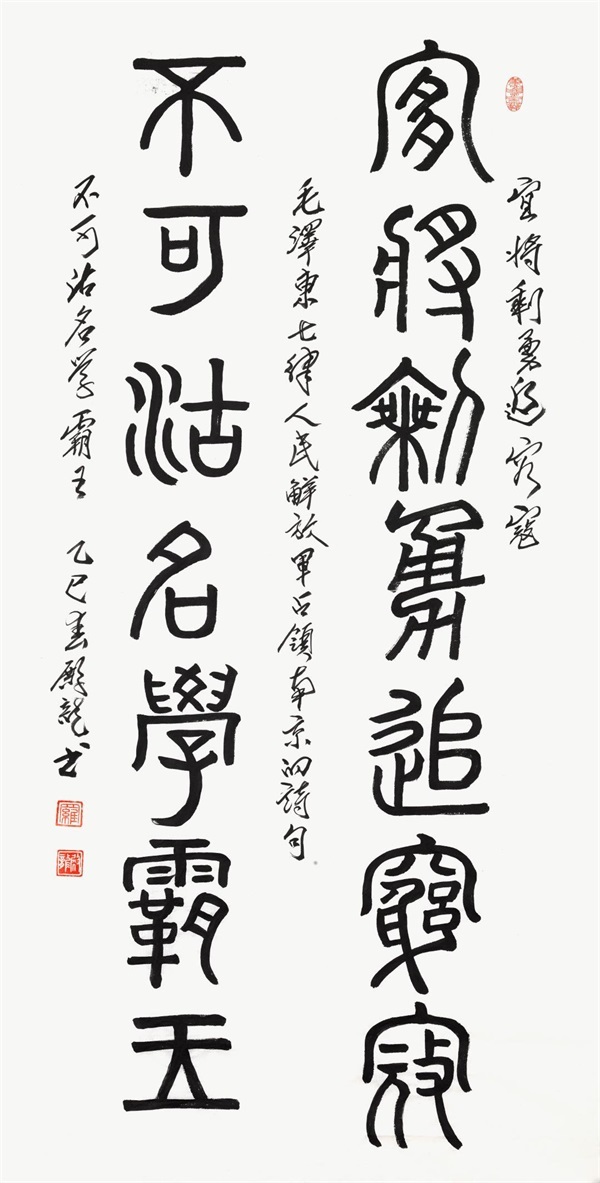 宜将剩勇追穷寇
宜將剩勇追窮寇
毛澤東七律人民解放軍占領南京的詩句
不可沽名學霸王
不可沽名学霸王 乙巳春殿龍书
羅